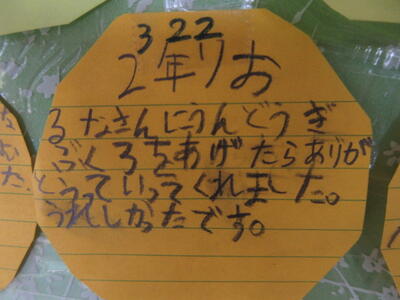 ３２２
２年りお
るなさんにうんどうぎ
ぶくろをあげたらありが
とうっていってくれました。
うれしかったです。